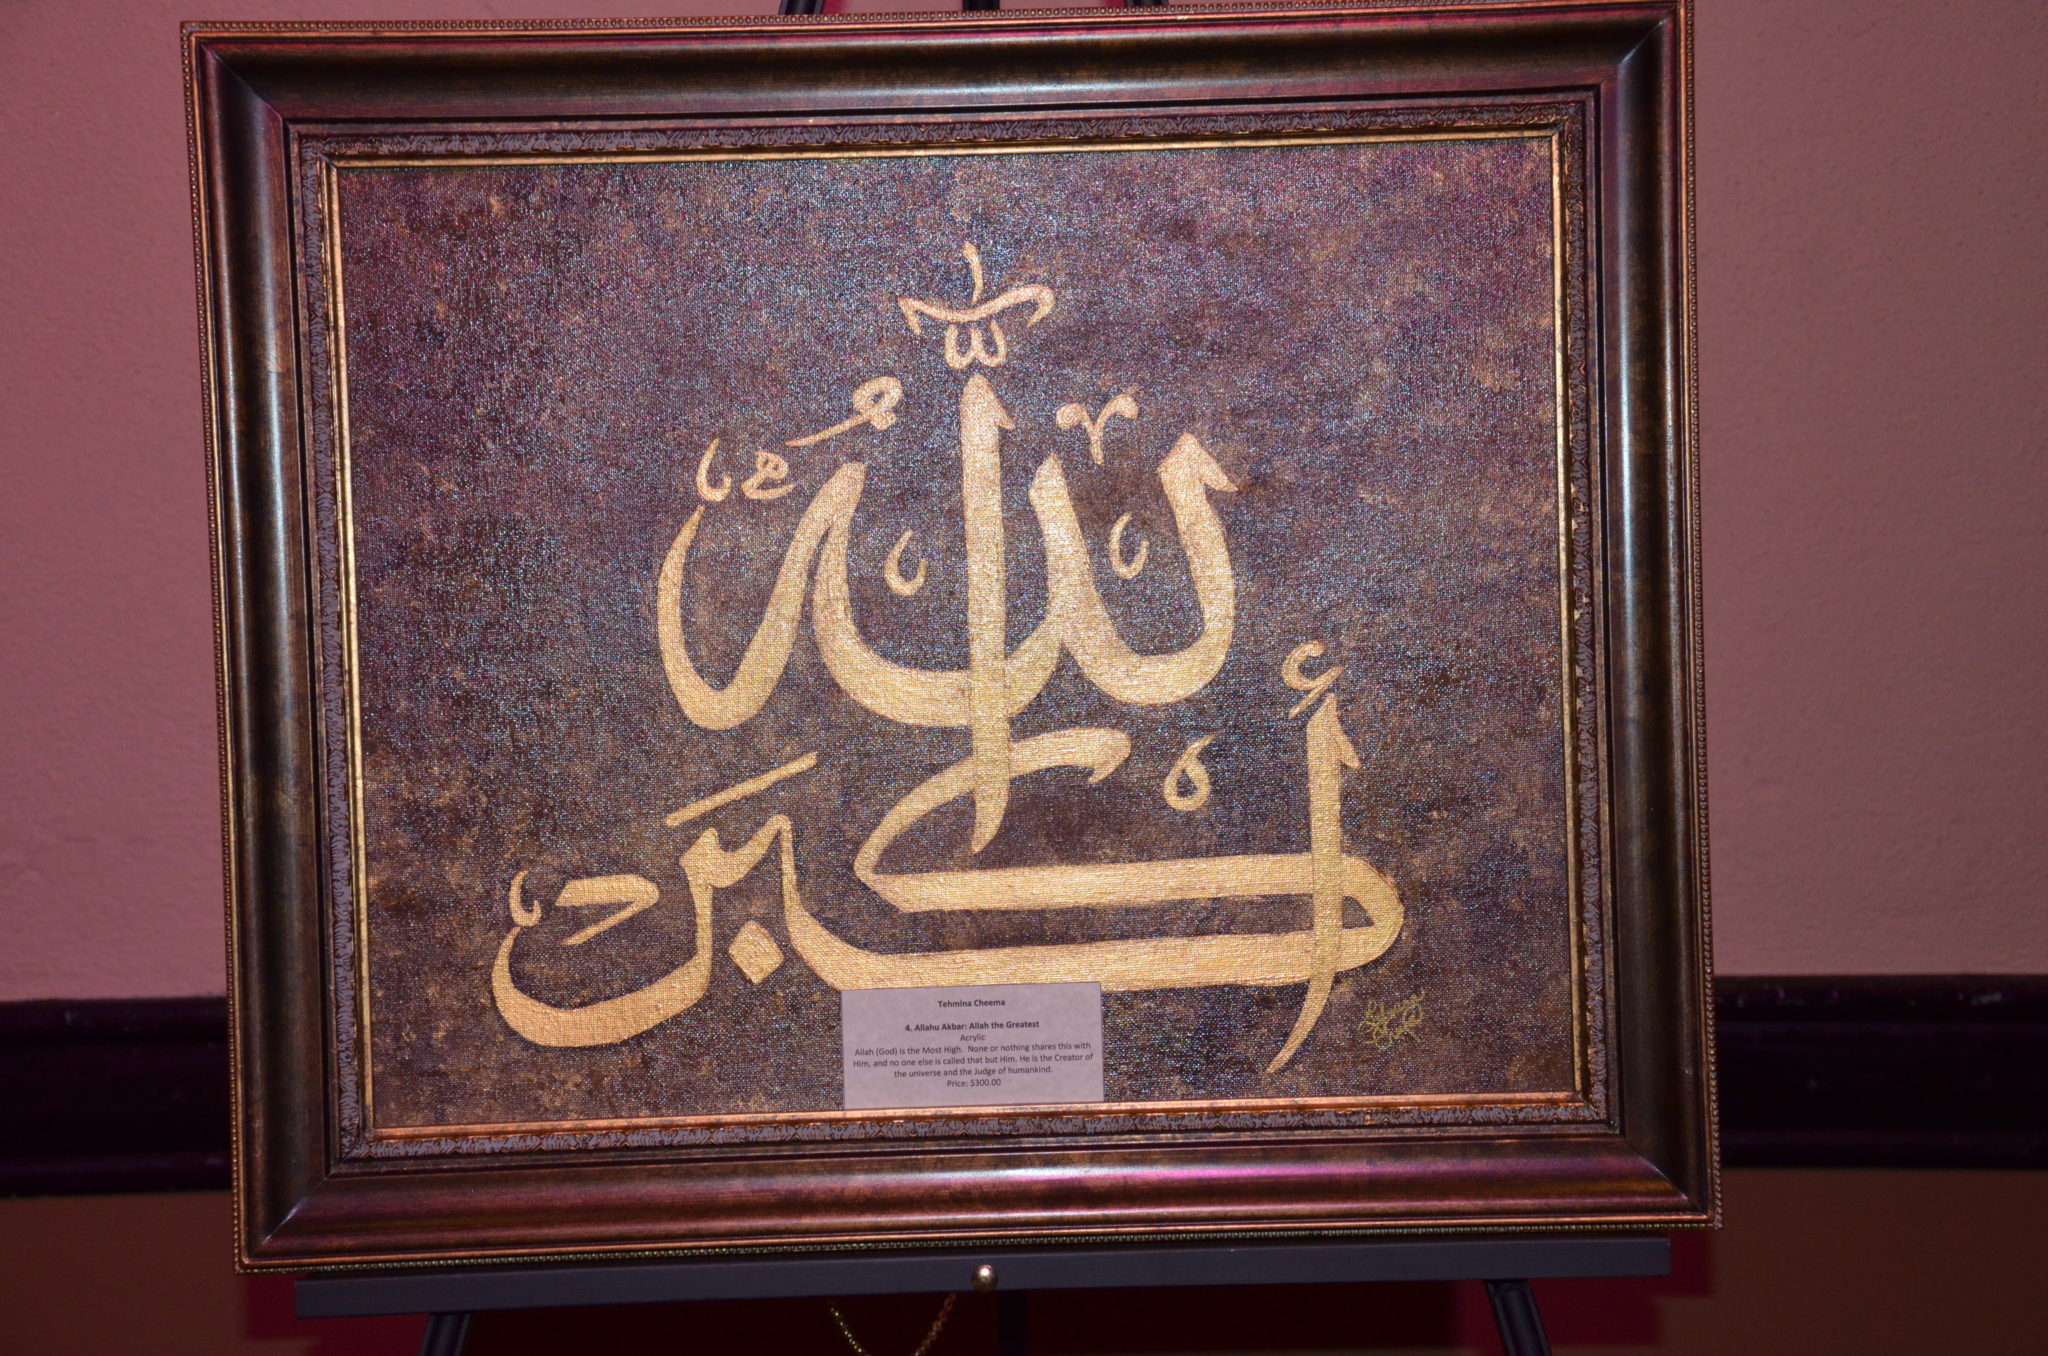 الله
أكبر
Tehmina Cheema
4. Allahu Akbar: Allah the Greatest
Acrylic
Allah (God) is the Most High. None or nothing shares this with
Him, and no one else is called that but Him. He is the Creator of
the universe and the Judge of humankind.
Price: $300.00